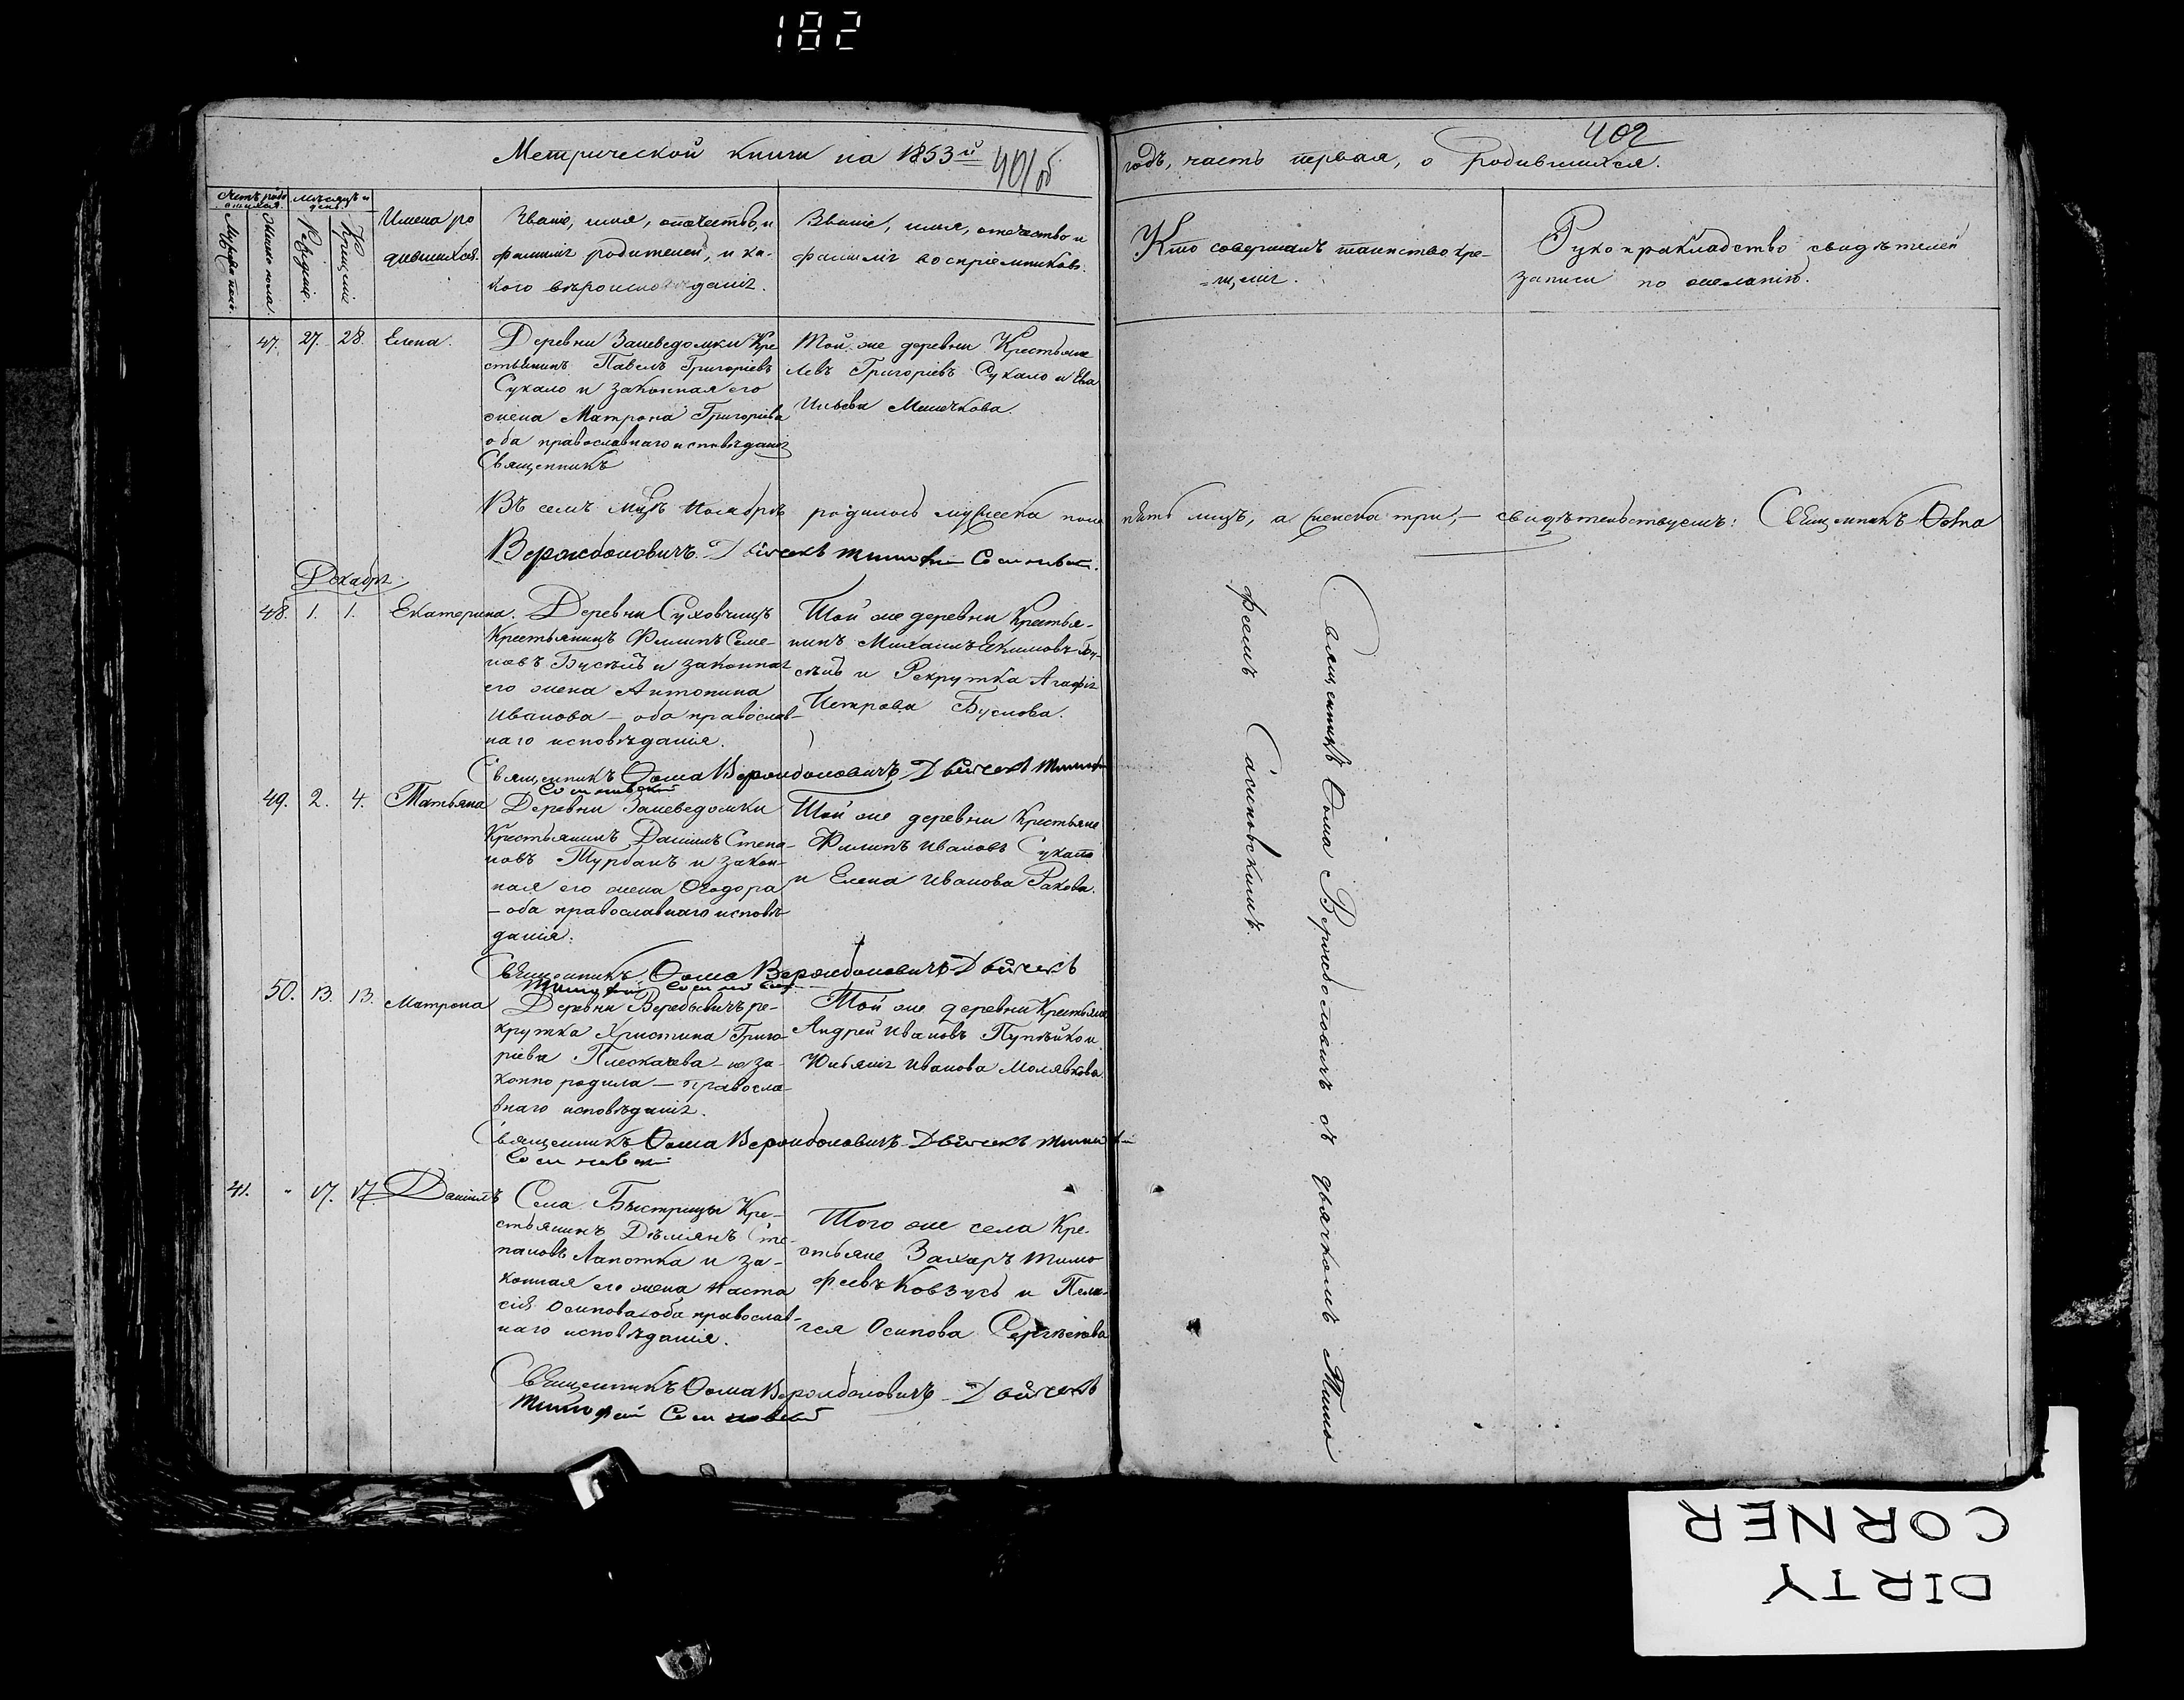 182
Метрической книги на 1853й
401об
402
годъ, часть первая, о родившихся.
Счетъ родившихся.
Мужеска пола.
Женска пола.
Мѣсяцъ и день.
Рожденіе.
Крещеніе
Имена родившихся.
Званіе, имя, отечество, и
фамилія родителей, и ка-
кого вѣроисповѣданія.
Званіе, имя, отечество и
фамилія воспріемниковъ.
Кто совершалъ таинство кре-
щенія.
Рукоприкладство свидѣтелей
записи по желанію.
47. 27. 28. Елена.
Деревни Заневедомки Кре
стьянинъ Павелъ Григоріевъ
Сукало и законная его
жена Матрона Григоріева
оба православнаго исповѣданія
Священникъ
Той же деревни Крестьяне
Левъ Григоріевъ Сукало и Ева
Ильева
Въ семъ мцѣ Ноябрѣ родилось мужеска пола пять лицъ, а женска три,— свидѣтельствуемъ: Священникъ Ѳома
Вержболовичъ. Дьячекъ Тимофей
Декабрь
48. 1. 1. Екатерина.
Деревни Суховчицъ
Крестьянинъ Филипъ Семе-
новъ Бусѣлъ и законная
его жена Антонина
Иванова — оба православ-
наго исповѣданія.
Той же деревни Крестья-
нинъ Михаилъ Екимовъ Бу-
сѣлъ и Рекрутка Агафія
Петрова Буслова.
Священникъ Ѳома Вержболовичъ Дьячекъ
49. 2. 4. Татьяна
Деревни Заневедомки
Крестьянинъ Даніилъ Степа-
новъ Турбанъ и закон-
ная его жена Ѳеодора
— оба православнаго исповѣ-
данія.
Той же деревни Крестьяне
Филипъ Ивановъ Сукало
и Елена Иванова Ракова.
Священникъ Ѳома Вержболовичъ Дьячекъ
50. 13. 13. Матрона
Деревни Веребьевичъ ре-
крутка Христина Григо-
ріева Плескачева — неза-
конно родила — правосла-
внаго исповѣданія.
Той же деревни Крестьяне
Андрей Ивановъ Пупѣйко и
Юліанія Иванова Молявкова.
Священникъ Ѳома Вержболовичъ Дьячекъ
41. " 17. 17. Даніилъ
Села Быстрицы Кре-
стьянинъ Дѣміянъ Сте-
пановъ Лапотка и за-
конная его жена Наста
сія Осипова оба православ-
наго исповѣданія.
Того же села Кре-
стьяне Захаръ Тимо
феевъ Ковзусь и Пела-
гея Осипова
Священникъ Ѳома Вержболовичъ Дьячекъ
Тимофей
Священникъ Ѳома Вержболовичъ съ дьячкомъ Тимо
феемъ
DIRTY
CORNER